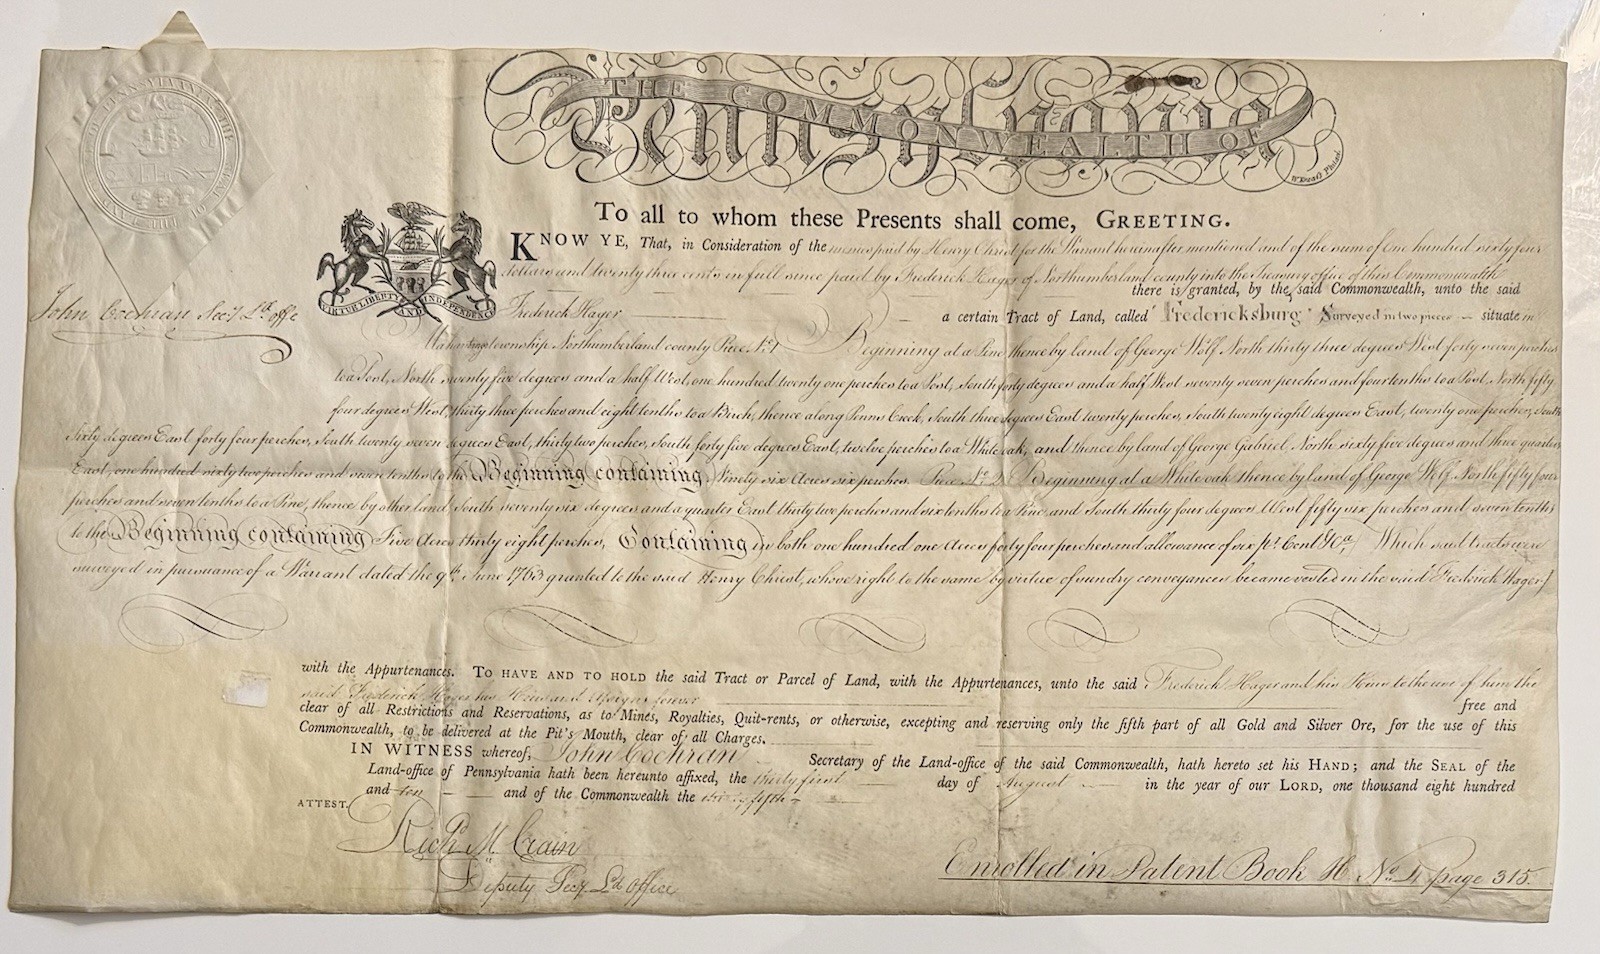 THE COMMONWEALTH OF
Pennsylvania
To all to whom these Presents shall come, GREETING.
KNOW YE, That, in Consideration of the monies paid by Henry Christ for the Warrant hereinafter mentioned and of the sum of one hundred sixty four
dollars and twenty three cents in full since paid by Frederick Hager of Northumberland county into the Treasury office of this Commonwealth
there is granted, by the said Commonwealth, unto the said
VIRTUE LIBERTY AND INDEPENDENCE
John Cochran Secy. Ld. offe
Frederick Hager a certain Tract of Land, called Fredericksburg Surveyed in two pieces situate in
township Northumberland county Piece No. 1 Beginning at a Pine thence by land of George Wolf North thirty three degrees West forty seven perches
to a Post, North seventy five degrees and a half West, one hundred twenty one perches to a Post, South forty degrees and a half West seventy seven perches and four tenths to a Post, North fifty
four degrees West, thirty three perches and eight tenths to a Birch, thence along Penns Creek, South three degrees East twenty perches, South twenty eight degrees East, twenty one perches, South
Sixty degrees East forty four perches, South twenty seven degrees East, thirty two perches, South forty five degrees East, twelve perches to a White oak, and thence by land of George Gabriel, North sixty five degrees and three quarters
East, one hundred sixty two perches and seven tenths to the Beginning containing Ninety six Acres six perches. Piece No. 2 Beginning at a White oak thence by land of George Wolf North fifty four
perches and seven tenths to a Pine, thence by other land, South seventy six degrees and a quarter East thirty two perches and six tenths to a Pine and South thirty four degrees West fifty six perches and seven tenths
to the Beginning containing Five Acres thirty eight perches, Containing in both one hundred one Acres forty four perches and allowance of six pr. Cent &ca. Which said tracts were
surveyed in pursuance of a Warrant dated the 9th June 1763 granted to the said Henry Christ, whose right to the same by virtue of sundry conveyances became vested in the said Frederick Hager
with the Appurtenances. TO HAVE AND TO HOLD the said Tract or Parcel of Land, with the Appurtenances, unto the said Frederick Hager and his Heirs to the use of him the
said Frederick Hager his Heirs and Assigns forever free and
clear of all Restrictions and Reservations, as to Mines, Royalties, Quit-rents, or otherwise, excepting and reserving only the fifth part of all Gold and Silver Ore, for the use of this
Commonwealth, to be delivered at the Pit's Mouth, clear of all Charges.
IN WITNESS whereof, John Cochran Secretary of the Land-office of the said Commonwealth, hath hereto set his HAND; and the SEAL of the
Land-office of Pennsylvania hath been hereunto affixed, the thirty first day of August in the year of our LORD, one thousand eight hundred
and ten and of the Commonwealth the thirty fifth
ATTEST.
Richd. M. Crain
Deputy Secy. Ld. Office
Enrolled in Patent Book H No. page 315.